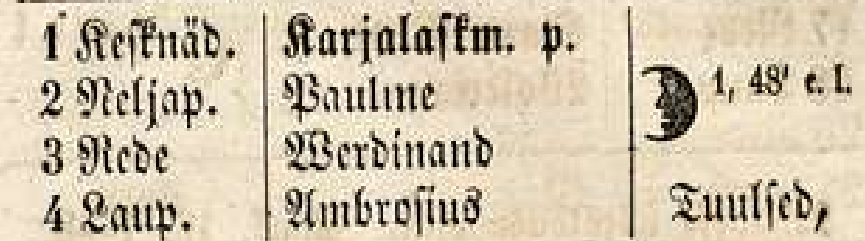 1 Keſknäd. Karjalaſkm. p.
2 Neljap. Pauline 1, 48' e. l.
3 Rede Werdinand
4 Laup. Ambroſius Tuulſed,